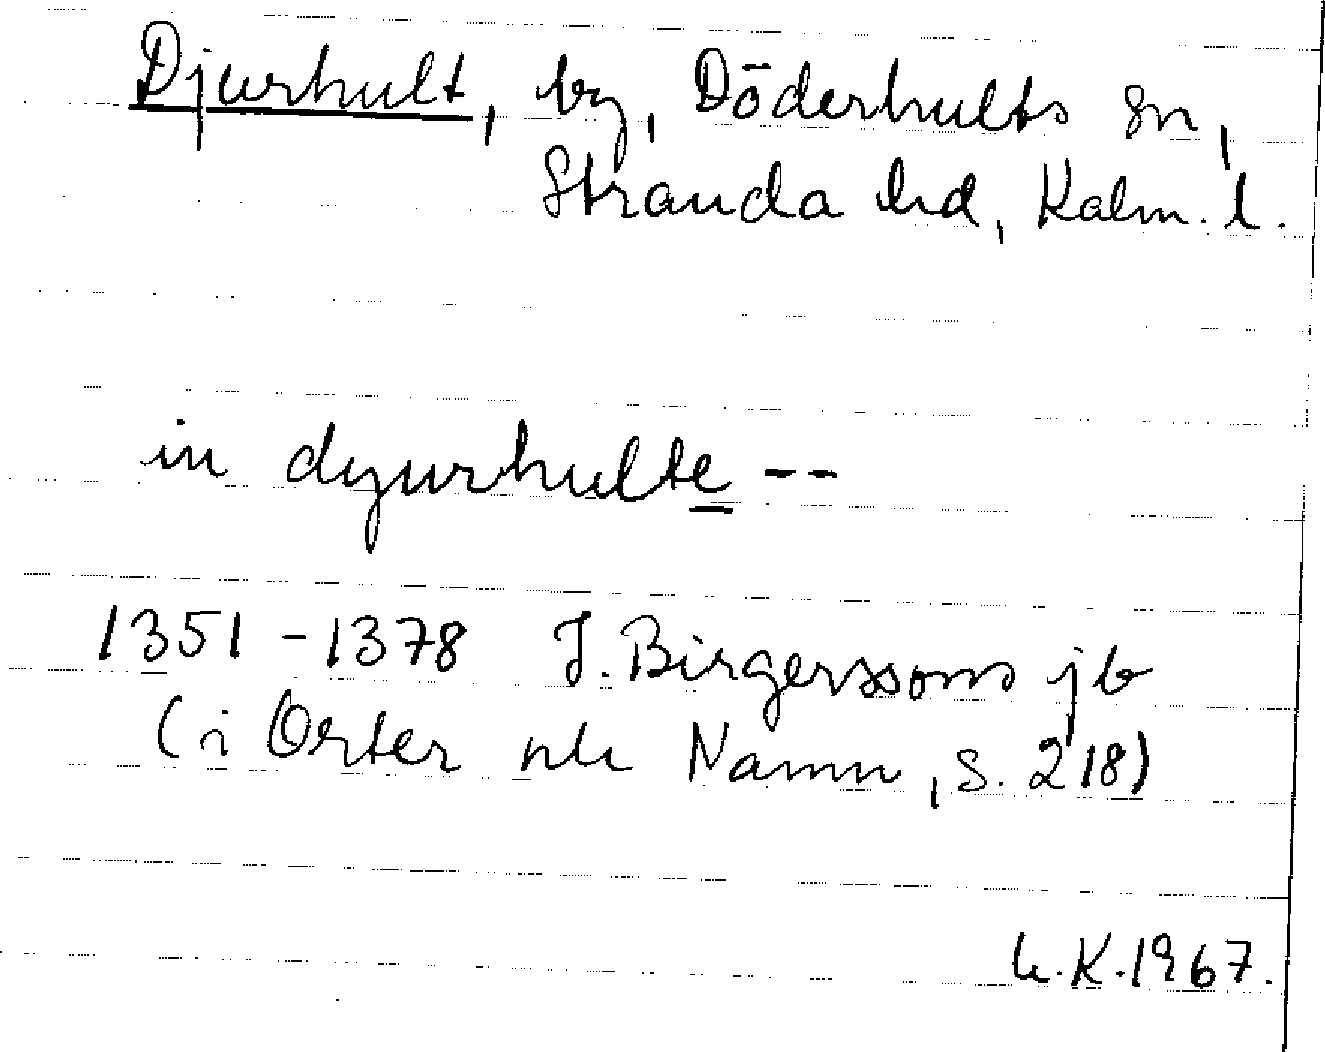 Djurhult, by, Döderhults sn,
Stranda hd, Kalm. l.
in dyurhulte --
1351-1378 J. Birgerssons jb
(i Orter och Namn, s. 218)
K. 1967.